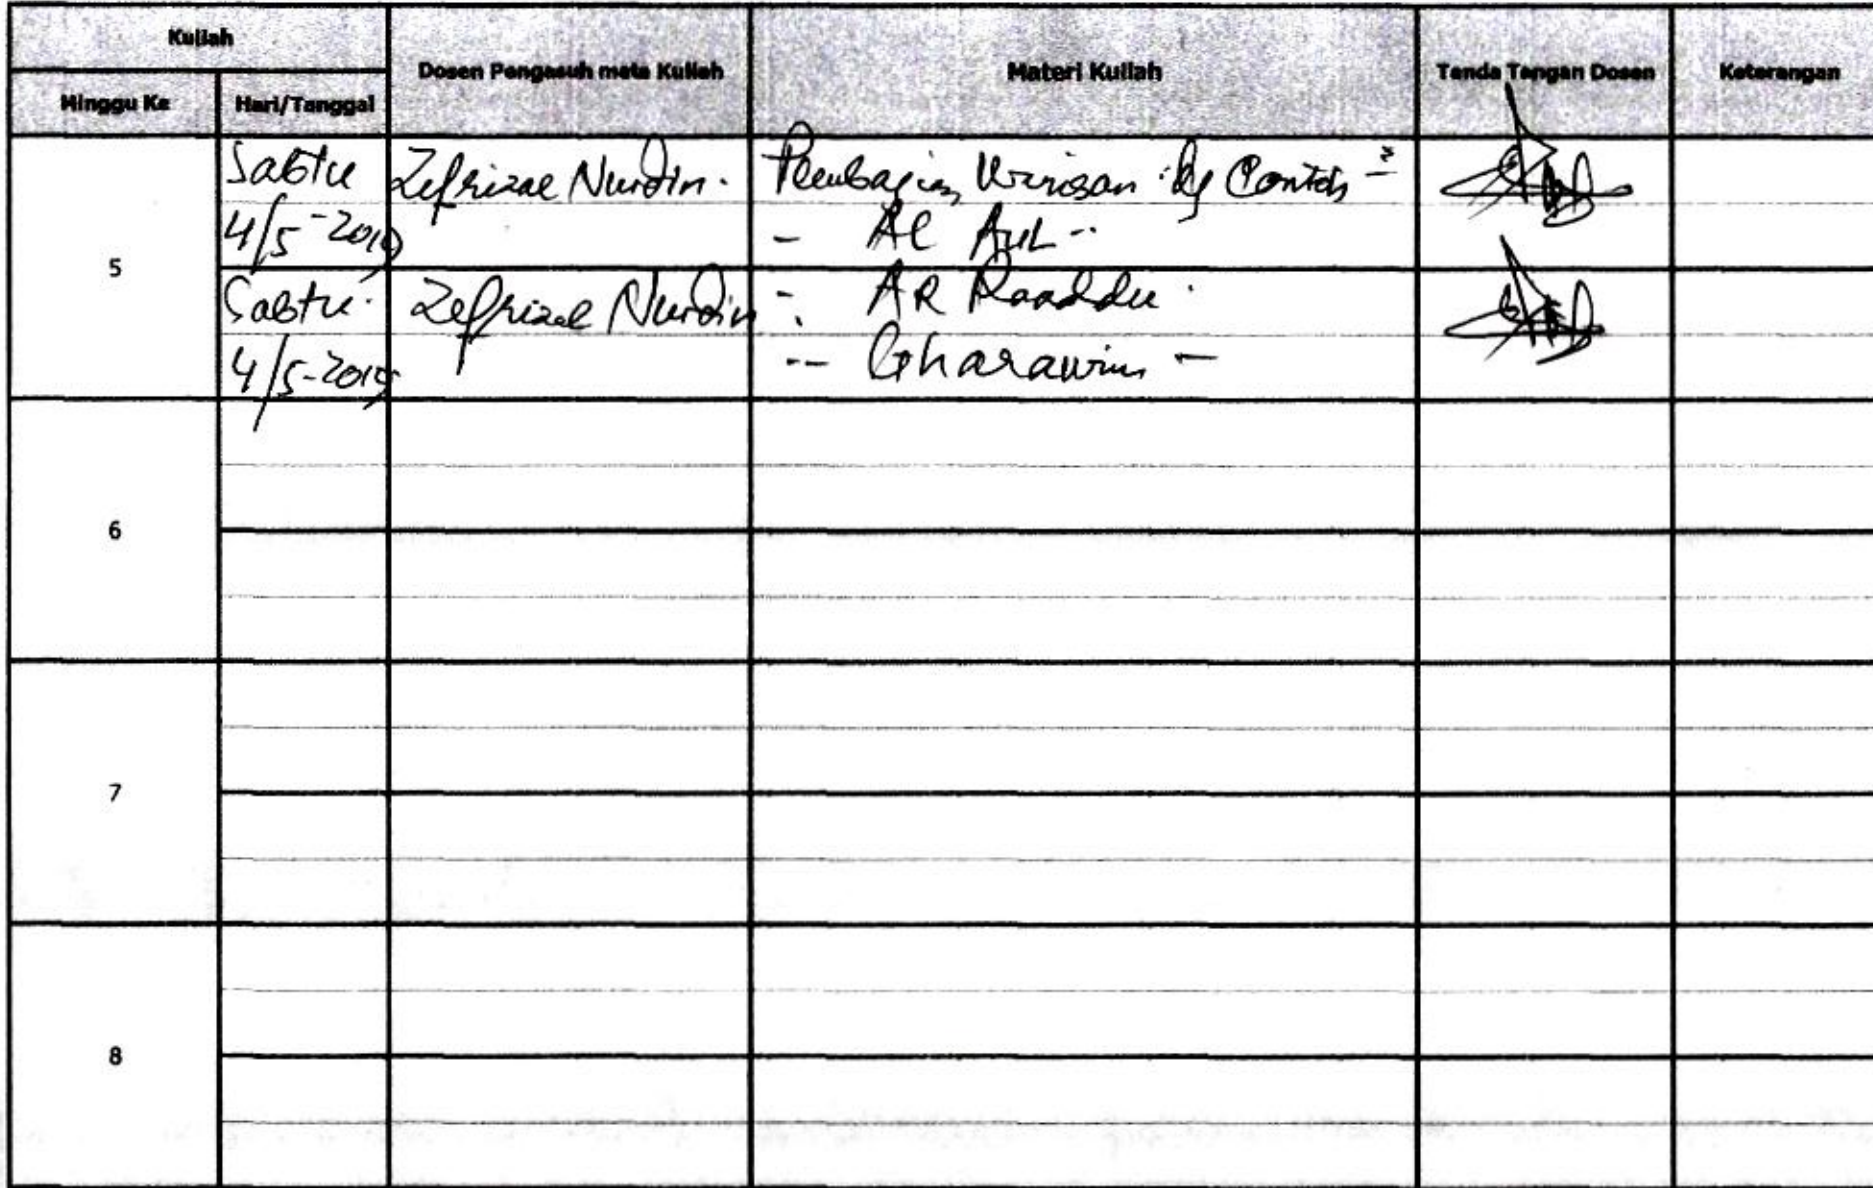 Kuliah
Dosen Pengasuh mata Kuliah
Materi Kuliah
Tanda Tangan Dosen
Keterangan
Minggu Ke
Hari/Tanggal
5
Sabtu
Zefrizal Nurdin.
Pembagian Warisan dg Contoh²
4/5-2019
- Al Aul -
Sabtu.
Zefrizal Nurdin
- AR Raaddu
4/5-2019
-- Gharawin -
6
7
8